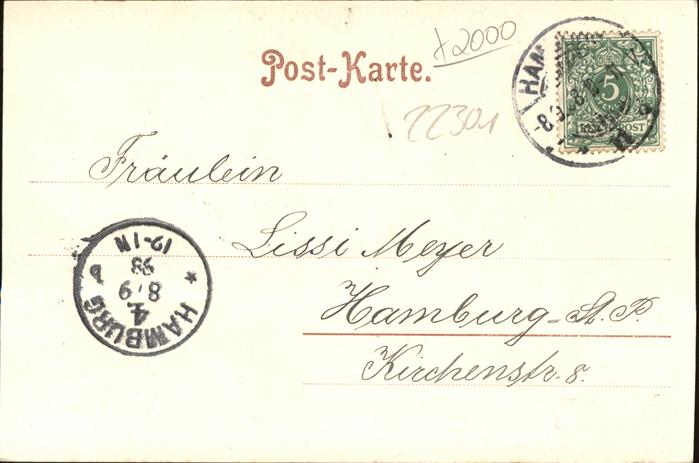 +2000
Post-Karte.
22301
HAM
-8.9.
5
REICHSPOST
Fräulein
Lissi Meyer
Hamburg-St. P.
Kirchenstr. 8.
HAMBURG
4.
8/9
98
12-1N